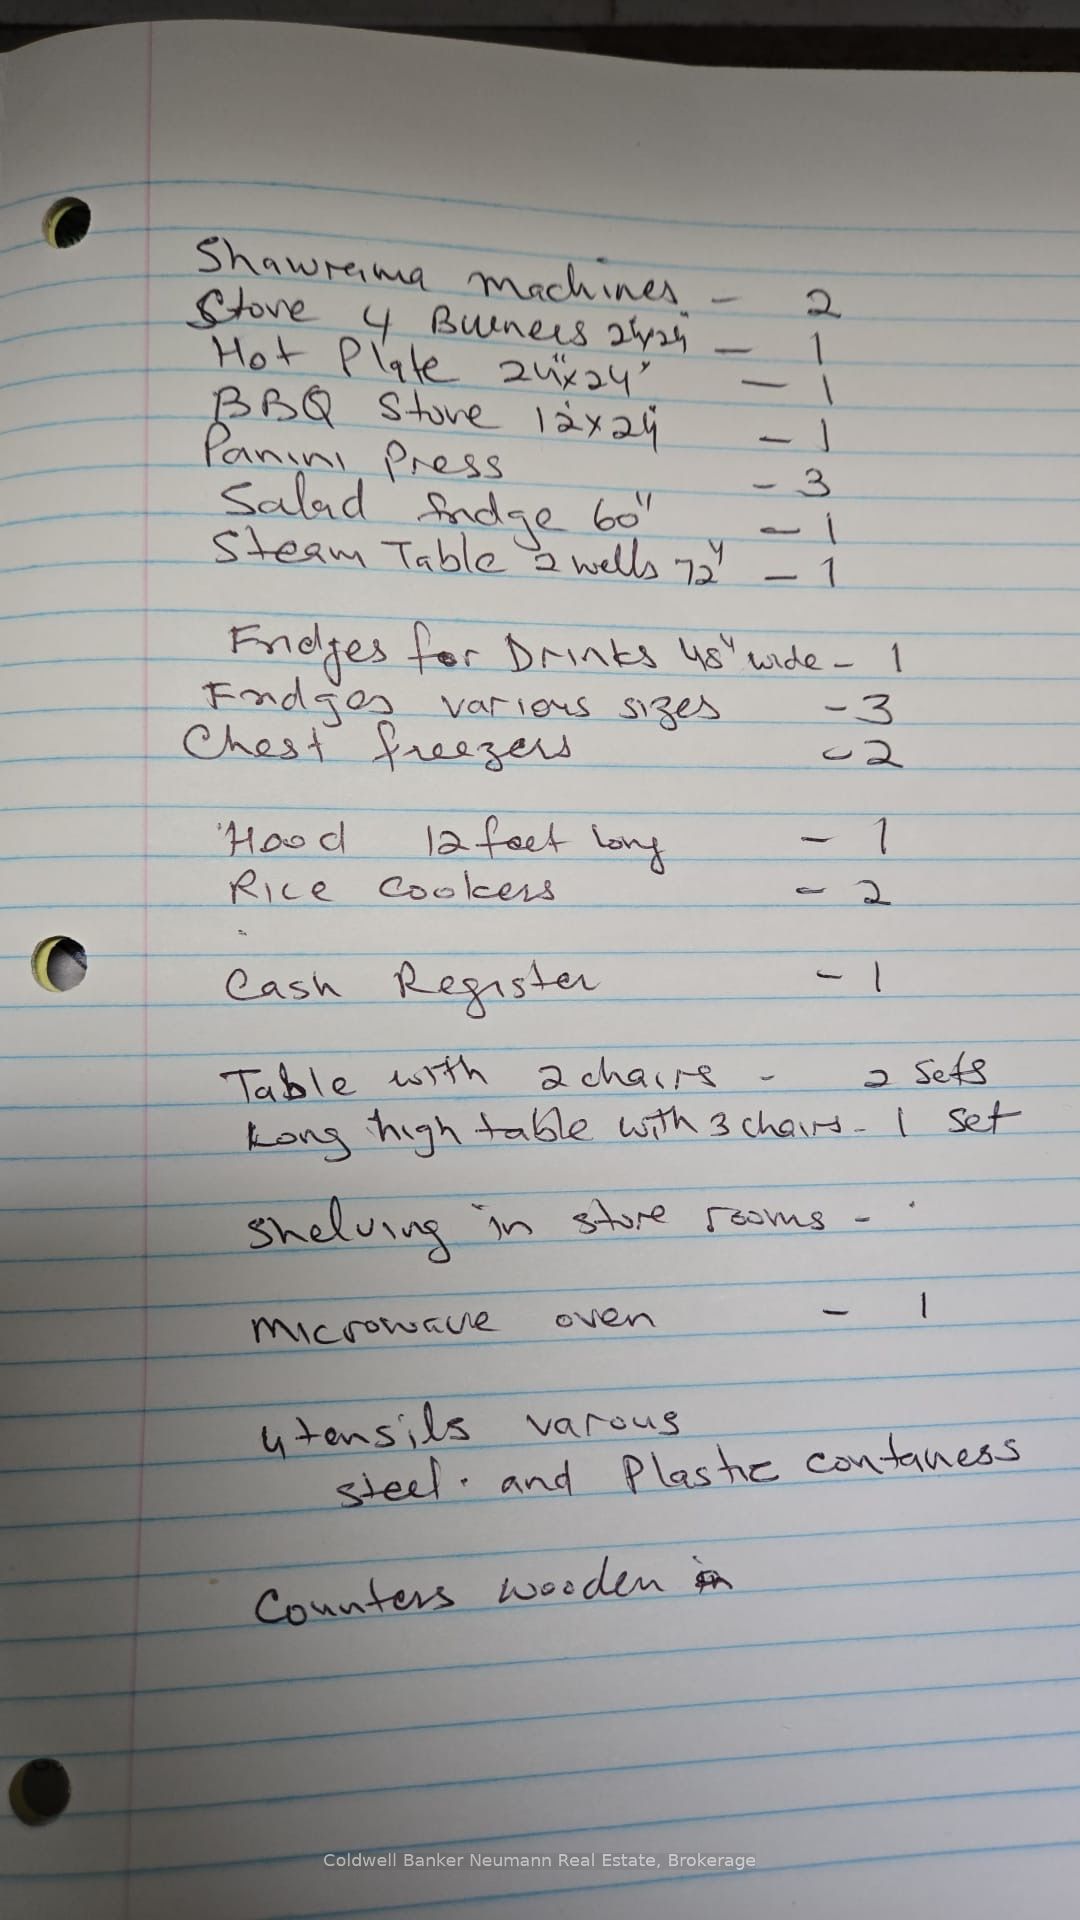 Shawrema machines - 2
Stove 4 Burners 24x24" - 1
Hot Plate 24"x24" - 1
BBQ Stove 12x24" - 1
Panini Press - 3
Salad fridge 60" - 1
Steam Table 2 wells 72" - 1
Fridges for Drinks 48" wide - 1
Fridges various sizes - 3
Chest freezers - 2
Hood 12 feet long - 1
Rice Cookers - 2
Cash Register - 1
Table with 2 chairs - 2 Sets
Long high table with 3 chairs - 1 Set
Shelving in store rooms -
Microwave oven - 1
Utensils varous
steel. and Plastic contaness
Counters wooden in
Coldwell Banker Neumann Real Estate, Brokerage